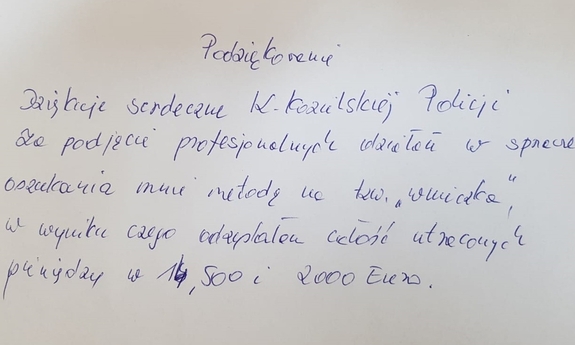 Podziękowanie
Dziękuje serdeczne K-Kozielskiej Policji
Za podjęcie profesjonalnych działań w sprawie
oszukania mnie metodą na tzw. „wnuczka",
w wyniku czego odzyskałem całość utraconych
pieniędzy w 14,500 i 2000 Euro.